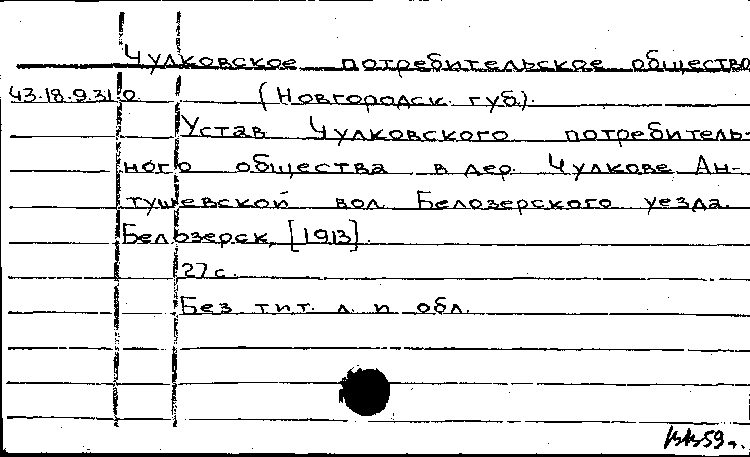 Чулковское потребительское общество
43.18.9.310 (Новгородск. губ.).
Устав Чулковского потребитель-
ного общества в дер. Чулкове Ан-
тушевской вол. Белозерского уезда.
Белозерск, [1913].
27 с.
Без тит. л. и обл.